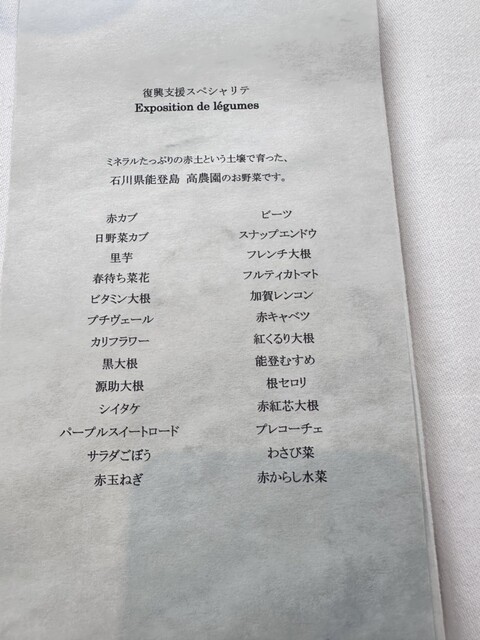 復興支援スペシャリテ
Exposition de légumes
ミネラルたっぷりの赤土という土壌で育った、
石川県能登島 高農園のお野菜です。
赤カブ
日野菜カブ
里芋
春待ち菜花
ビタミン大根
プチヴェール
カリフラワー
黒大根
源助大根
シイタケ
パープルスイートロード
サラダごぼう
赤玉ねぎ
ビーツ
スナップエンドウ
フレンチ大根
フルティカトマト
加賀レンコン
赤キャベツ
紅くるり大根
能登むすめ
根セロリ
赤紅芯大根
プレコーチェ
わさび菜
赤からし水菜